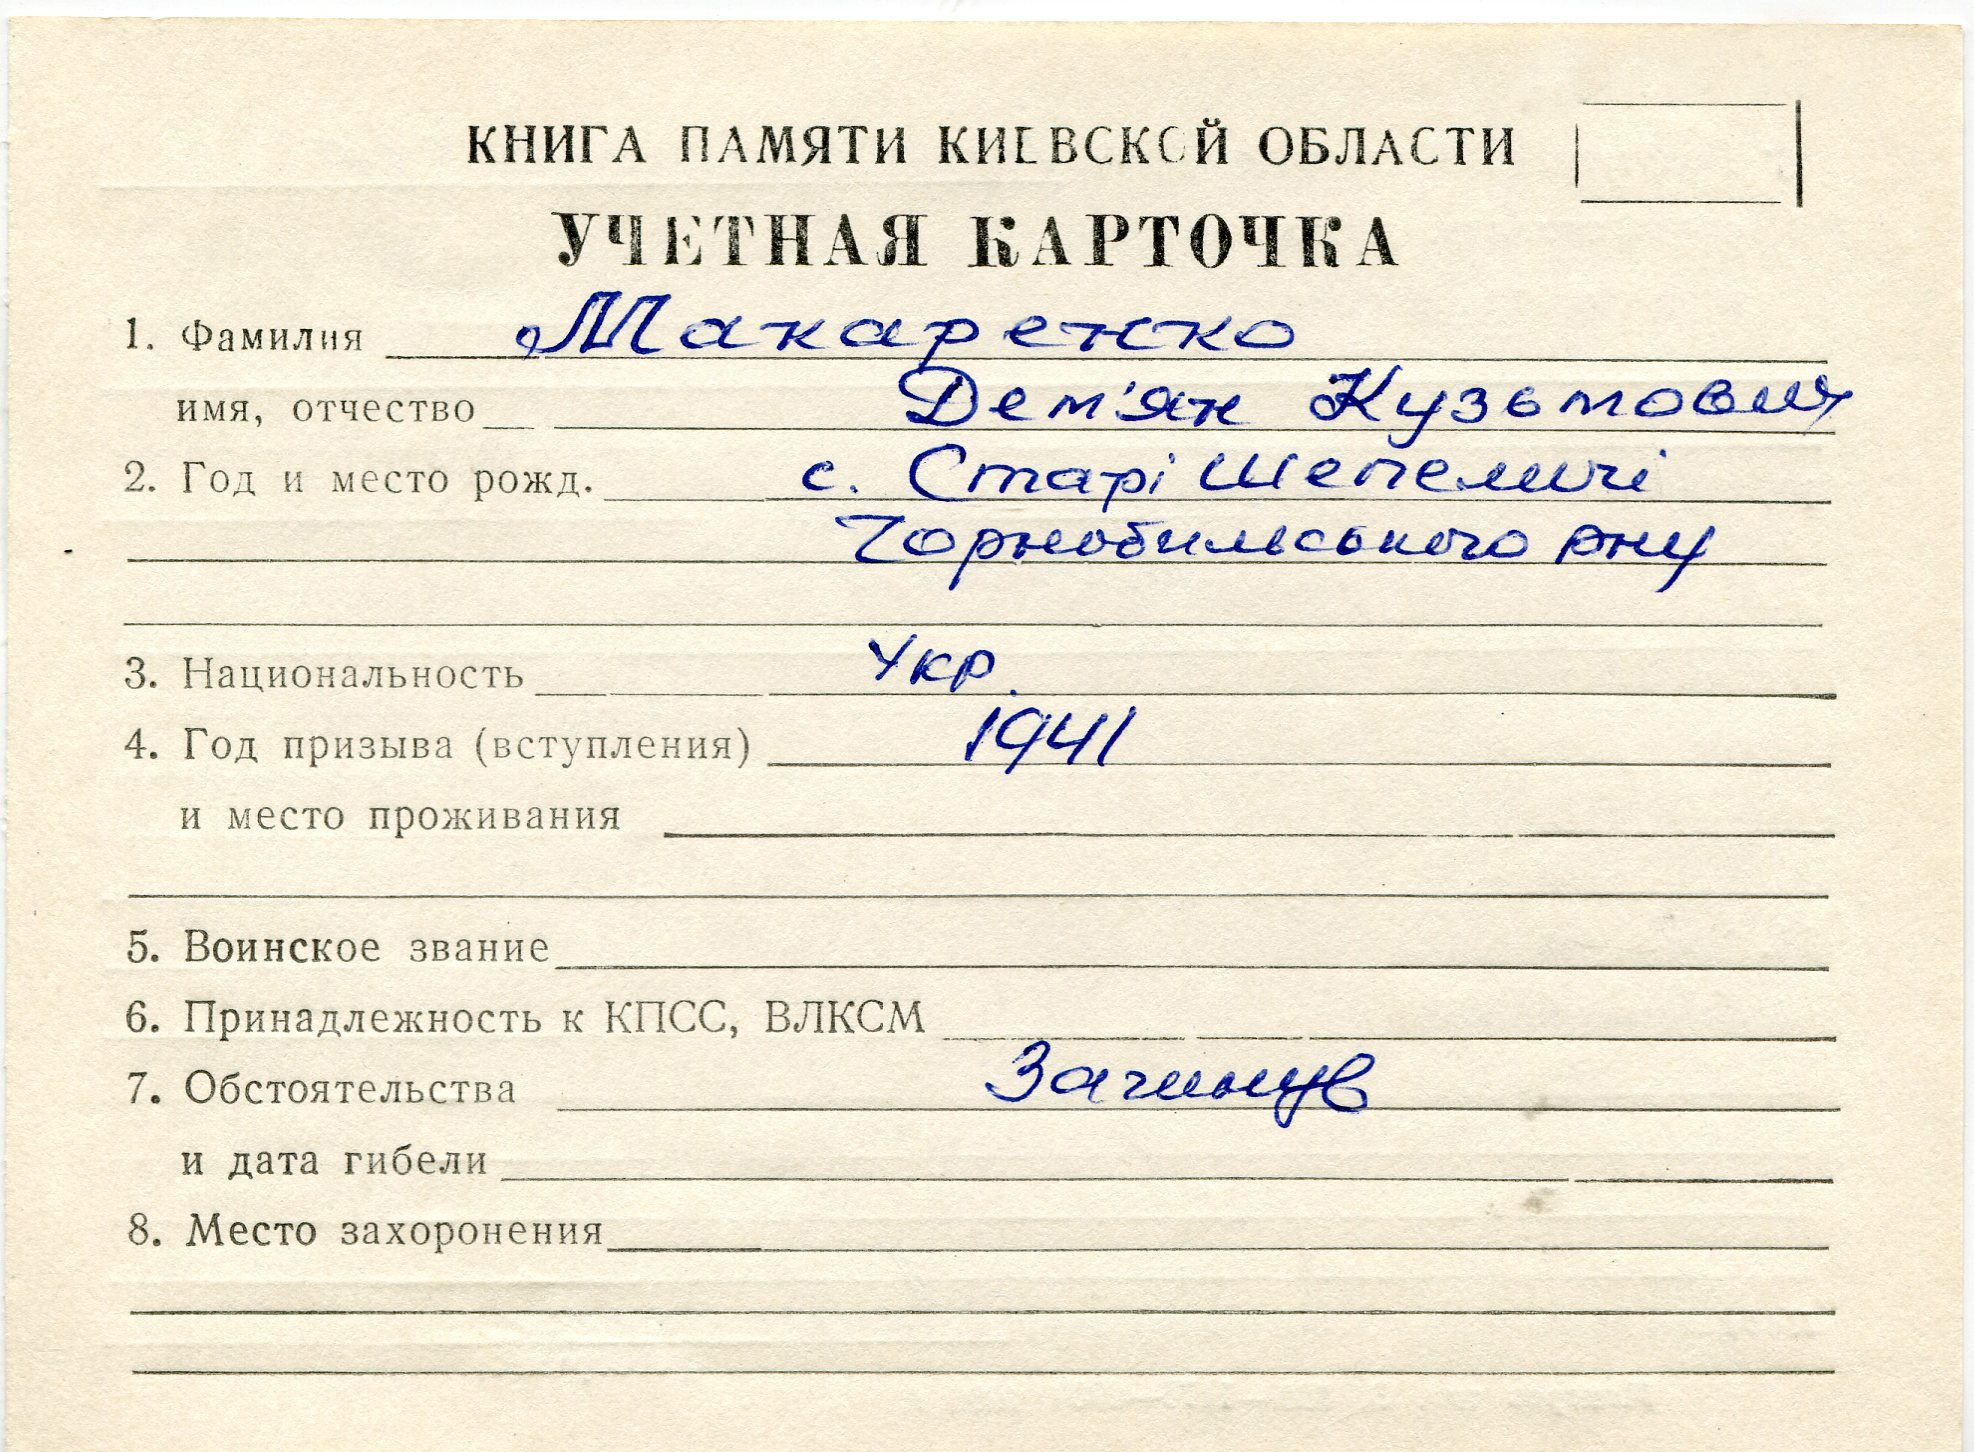 КНИГА ПАМЯТИ КИЕВСКОЙ ОБЛАСТИ
УЧЕТНАЯ КАРТОЧКА
1. Фамилия Макаренко
имя, отчество Дем'ян Кузьмович
2. Год и место рожд. с. Старі Шепеличі
Чорнобильського р-ну
3. Национальность Укр.
4. Год призыва (вступления) 1941
и место проживания
5. Воинское звание
6. Принадлежность к КПСС, ВЛКСМ
7. Обстоятельства Загинув
и дата гибели
8. Место захоронения